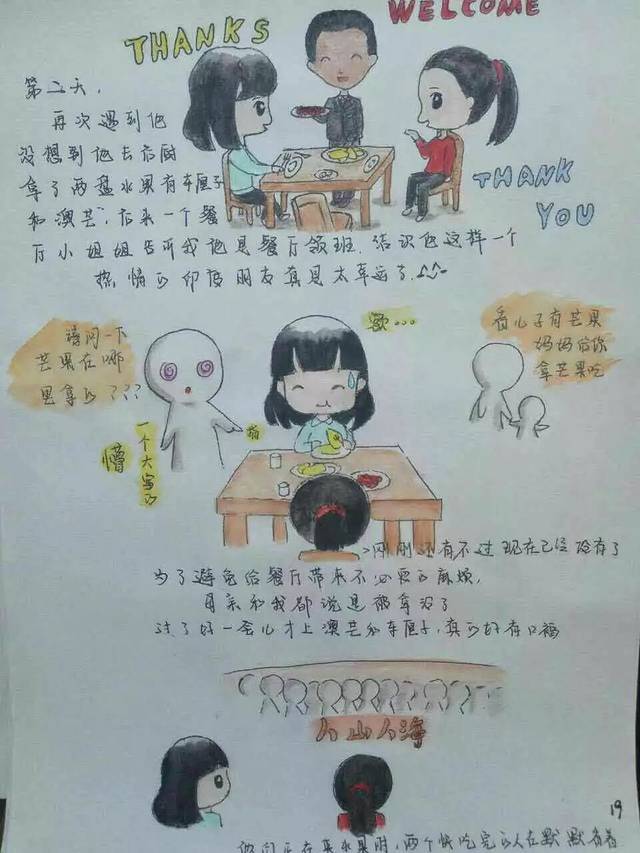 THANKS
WELCOME
第二天,
再次遇到他
没想到他去后厨
拿了两盘水果有车厘子
和澳芒,后来一个餐
厅小姐姐告诉我他是餐厅领班.结识他这样一个
热情的印度朋友真是太幸运了.
THANK
YOU
请问一下
芒果在哪
里拿的???
歇...
看儿子有芒果
妈妈给你
拿芒果吃
一个大写的
懵
指
>刚刚还有不过现在已经没有了
为了避免给餐厅带来不必要的麻烦,
母亲和我都说是被拿没了
过了好一会儿才上澳芒和车厘子,真的好有口福
人山人海
19
他们正在拿水果时,两个快吃完的人在默默看着